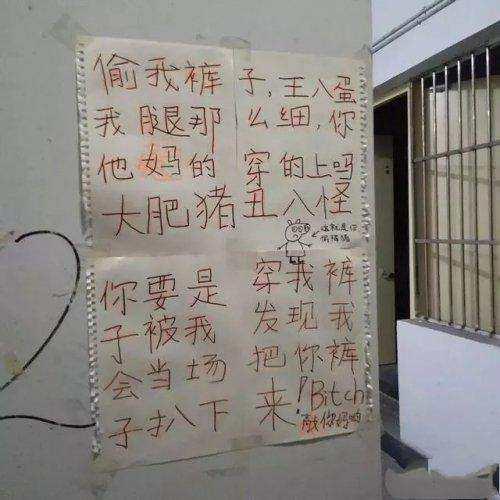 偷我裤子,王八蛋
我腿那么细,你
他妈的穿的上吗
大肥猪丑八怪
这就是你
你要是穿我裤
子被我发现我
会当场把你裤
子扒下来!Bitch